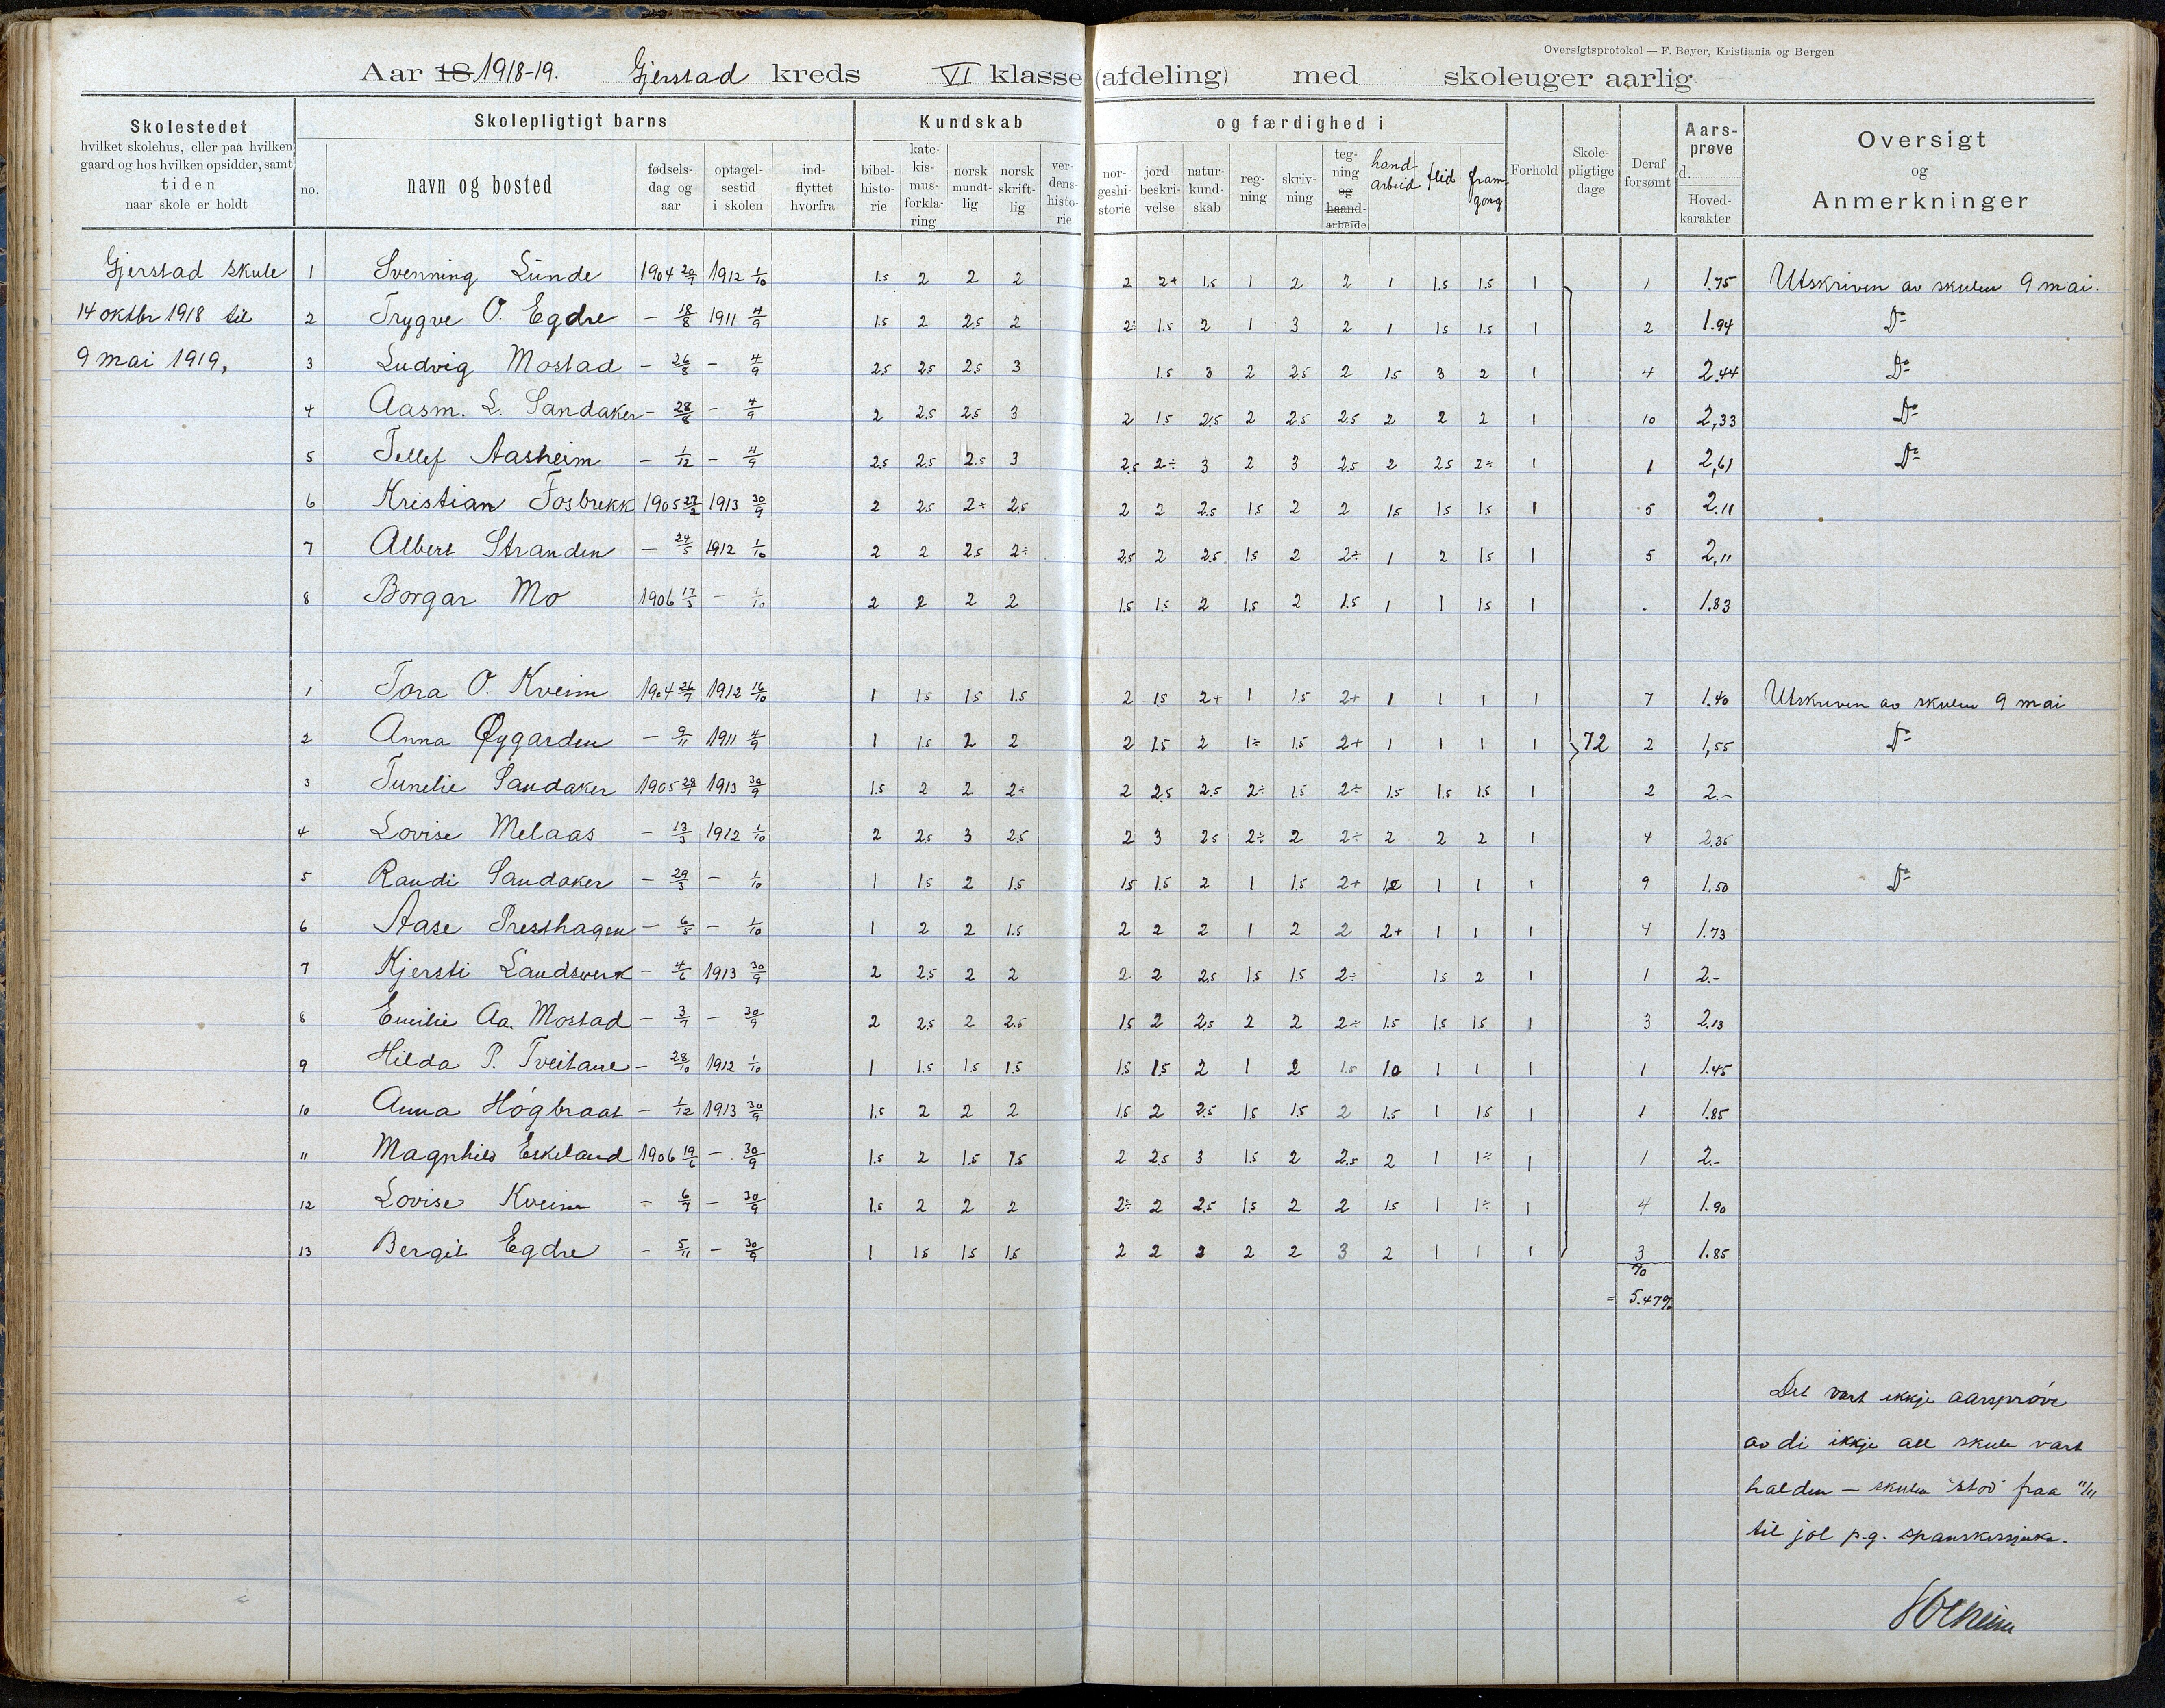 Oversigtsprotokol — F. Beyer, Kristiania og Bergen
Aar 18 1918-19. Gjerstad kreds VI klasse (afdeling) med skoleuger aarlig
Skolestedet
hvilket skolehus, eller paa hvilken
gaard og hos hvilken opsidder, samt
tiden
naar skole er holdt
Skolepligtigt barns
no.
navn og bosted
fødsels-
dag og
aar
optagel-
sestid
i skolen
ind-
flyttet
hvorfra
Kundskab og færdighed i
bibel-
histo-
rie
kate-
kis-
mus-
forkla-
ring
norsk
mundt-
lig
norsk
skrift-
lig
ver-
dens-
histo-
rie
nor-
geshi-
storie
jord-
beskri-
velse
natur-
kund-
skab
reg-
ning
skriv-
ning
teg-
ning
og
haand-
arbeide
hand-
arbeid
flid
fram-
gong
Forhold
Skole-
pligtige
dage
Deraf
forsømt
Aars-
prøve
d.
Hoved-
karakter
Oversigt
og
Anmerkninger
Gjerstad skule 1 Svenning Lunde 1904 20/9 1912 1/10 1.5 2 2 2 2 2+ 1.5 1 2 2 1 1.5 1.5 1 1 1.75 Utskriven av skulen 9 mai.
14 oktbr 1918 til 2 Trygve O. Egdre — 18/8 1911 4/9 1.5 2 2.5 2 2÷ 1.5 2 1 3 2 1 1.5 1.5 1 2 1.94 Do
9 mai 1919, 3 Ludvig Mostad — 26/8 — 4/9 2.5 2.5 2.5 3 1.5 3 2 2.5 2 1.5 3 2 1 4 2.44 Do
4 Aasm. L. Sandaker — 28/8 — 4/9 2 2.5 2.5 3 2 1.5 2.5 2 2.5 2.5 2 2 2 1 10 2,33 Do
5 Tellef Aasheim — 1/12 — 4/9 2.5 2.5 2.5 3 2.5 2÷ 3 2 3 2.5 2 2.5 2÷ 1 1 2,61 Do
6 Kristian Fosbrekk 1905 27/2 1913 30/9 2 2.5 2÷ 2.5 2 2 2.5 1.5 2 2 1.5 1.5 1.5 1 5 2.11
7 Albert Stranden — 24/5 1912 1/10 2 2 2.5 2÷ 2.5 2 2.5 1.5 2 2÷ 1 2 1.5 1 5 2,11
8 Borgar Mo 1906 17/3 — 1/10 2 2 2 2 1.5 1.5 2 1.5 2 1.5 1 1 1.5 1 . 1.83
1 Tora O. Kveim 1904 26/7 1912 16/10 1 1.5 1.5 1.5 2 1.5 2+ 1 1.5 2+ 1 1 1 1 7 1.40 Utskriven av skulen 9 mai
2 Anna Øygarden — 9/11 1911 4/9 1 1.5 2 2 2 1.5 2 1÷ 1.5 2+ 1 1 1 1 72 2 1,55 Do
3 Tunelie Sandaker 1905 28/1 1913 30/9 1.5 2 2 2÷ 2 2.5 2.5 2÷ 1.5 2÷ 1.5 1.5 1.5 1 2 2.-
4 Lovise Melaas — 13/3 1912 1/10 2 2.5 3 2.5 2 3 2.5 2÷ 2 2÷ 2 2 2 1 4 2.35
5 Randi Sandaker — 29/3 — 1/10 1 1.5 2 1.5 1.5 1.5 2 1 1.5 2+ 1.0 1 1 1 9 1.50 Do
6 Aase Presthagen — 6/5 — 1/10 1 2 2 1.5 2 2 2 1 2 2 2+ 1 1 1 4 1.73
7 Kjersti Landsverk — 4/6 1913 30/9 2 2.5 2 2 2 2 2.5 1.5 1.5 2÷ 1.5 2 1 1 2.-
8 Emilie Aa. Mostad — 3/7 — 30/9 2 2.5 2 2.5 1.5 2 2.5 2 2 2÷ 1.5 1.5 1.5 1 3 2,13
9 Hilda P. Tveitane — 28/10 1912 1/10 1 1.5 1.5 1.5 1.5 1.5 2 1 2 1.5 1.0 1 1 1 1 1.45
10 Anna Høgbraat — 1/12 1913 30/9 1.5 2 2 2 1.5 2 2.5 1.5 1.5 2 1.5 1 1.5 1 1 1.85
11 Magnhild Eskeland 1906 19/6 — 30/9 1.5 2 1.5 1.5 2 2.5 3 1.5 2 2.5 2 1 1÷ 1 1 2.-
12 Lovise Kveim — 6/7 — 30/9 1.5 2 2 2 2÷ 2 2.5 1.5 2 2 1.5 1 1÷ 1 4 1.90
13 Bergit Egdre — 5/11 — 30/9 1 1.5 1.5 1.5 2 2 2 2 2 3 2 1 1 1 3 1.85
70
= 5.47%
Det vart ikkje aarsprøve
av di ikkje all skule vart
halden — skulen "stod" fraa 11/11
til jol p.g. spanskesjuka.